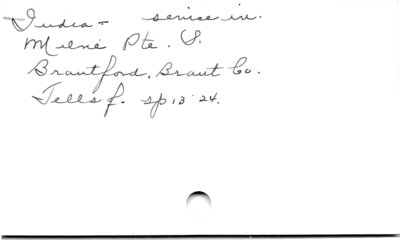 India - service in.
Milne Pte. S.
Brantford, Brant Co.
Tells of. sp 13 '24.